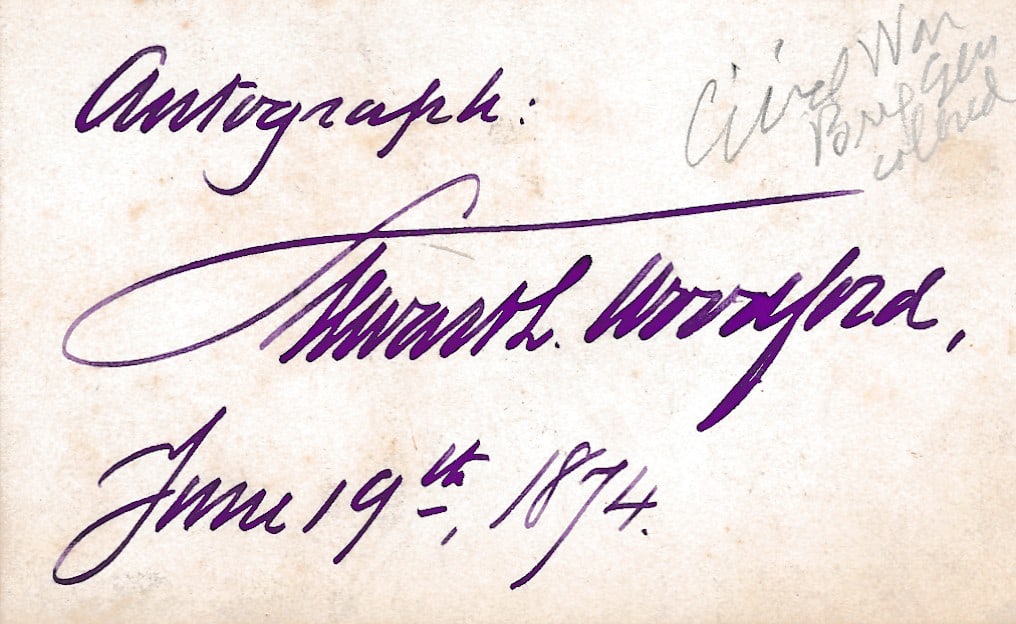 Autograph:
Stewart L. Woodford,
June 19th, 1874.
Civil War
Brig Gen
colored